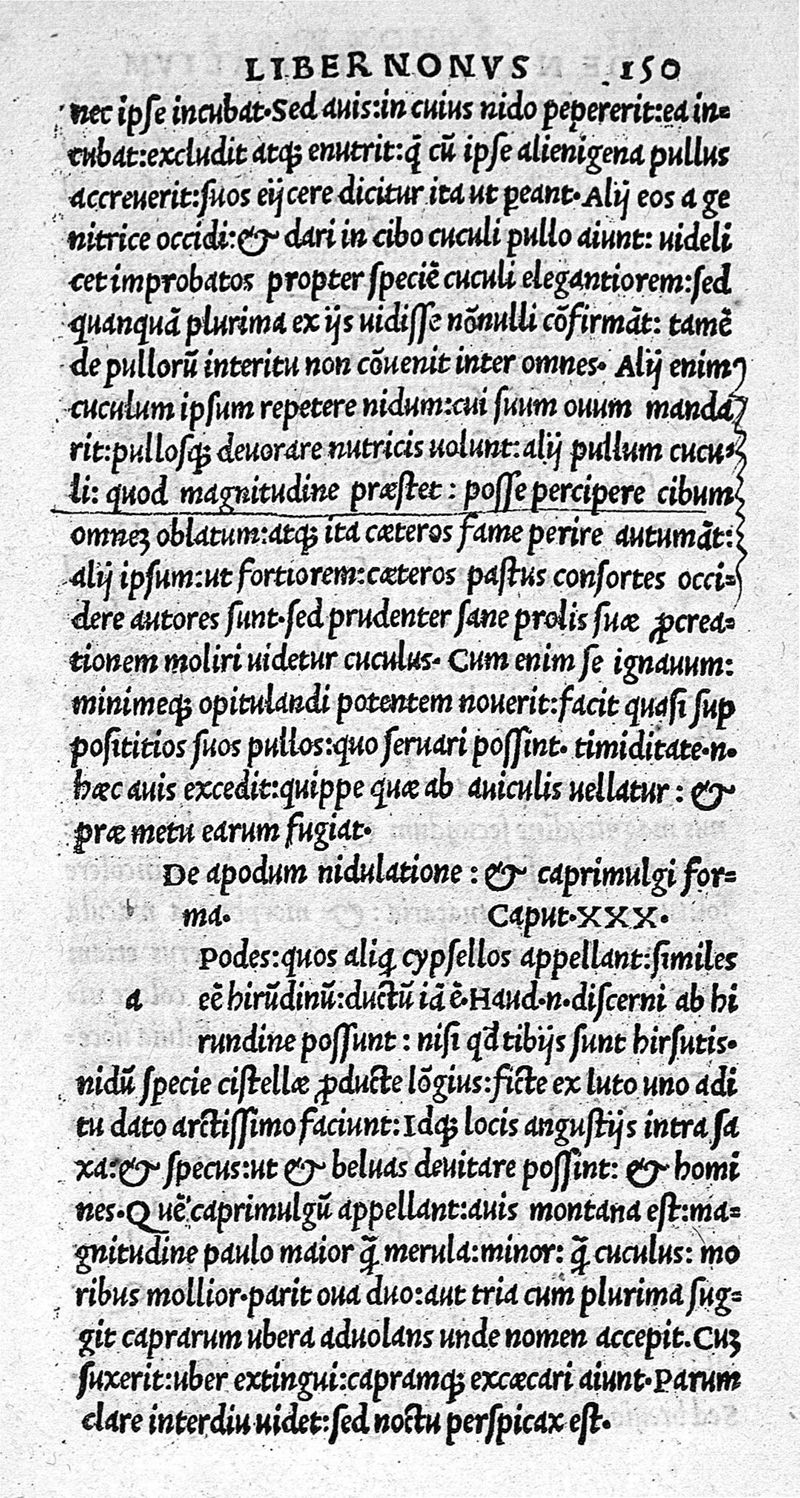 LIBER NONVS 150
nec ipse incubat·Sed auis:in cuius nido pepererit:ea in=
cubat:excludit atq; enutrit:q̃ cũ ipse alienigena pullus
accreuerit:suos eijcere dicitur ita ut ꝑeant·Alij eos a ge
nitrice occidi:& dari in cibo cuculi pullo aiunt: uideli
cet improbatos propter speciẽ cuculi elegantiorem:sed
quanquã plurima ex ijs uidisse nõnulli cõfirmãt: tamẽ
de pullorũ interitu non cõuenit inter omnes· Alij enim
cuculum ipsum repetere nidum:cui suum ouum manda
rit:pullosq; deuorare nutricis uolunt:alij pullum cucu=
li: quod magnitudine præstet : posse percipere cibum
omneꝫ oblatum:atq; ita cæteros fame perire autumãt:
alij ipsum:ut fortiorem:cæteros pastus consortes occi=
dere autores sunt·sed prudenter sane prolis suæ ꝓcrea=
tionem moliri uidetur cuculus· Cum enim se ignauum:
minimeq; opitulandi potentem nouerit:facit quasi sup
posititios suos pullos:quo seruari possint· timiditate·n·
hæc auis excedit:quippe quæ ab auiculis uellatur : &
præ metu earum fugiat·
De apodum nidulatione : & caprimulgi for=
ma· Caput·XXX·
Podes:quos aliq̃ cypsellos appellant:similes
a eẽ hirũdinũ:ductũ iã ẽ·Haud·n·discerni ab hi
rundine possunt : nisi qd̃ tibijs sunt hirsutis·
nidũ specie cistellæ ꝓducte lõgius:ficte ex luto uno adi
tu dato arctissimo faciunt:Idq; locis angustijs intra sa
xa:& specus:ut & beluas deuitare possint: & homi
nes·Quẽ caprimulgũ appellant:auis montana est:ma=
gnitudine paulo maior q̃ merula:minor: q̃ cuculus: mo
ribus mollior·parit oua duo:aut tria cum plurima sug=
git caprarum ubera aduolans unde nomen accepit.Cuꝫ
suxerit:uber extingui:capramq; excæcari aiunt·Parum
clare interdiu uidet:sed noctu perspicax est·